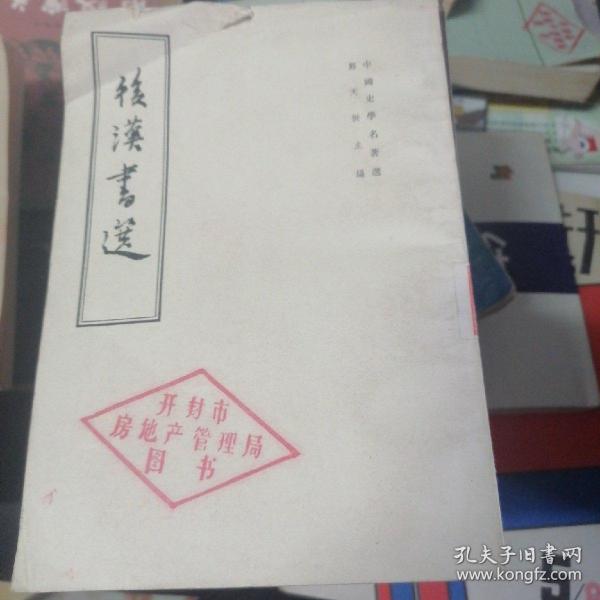 後漢書選
中國史學名著選
鄭天挺主編
开封市
房地产管理局
图书
孔夫子旧书网
www.kongfz.com